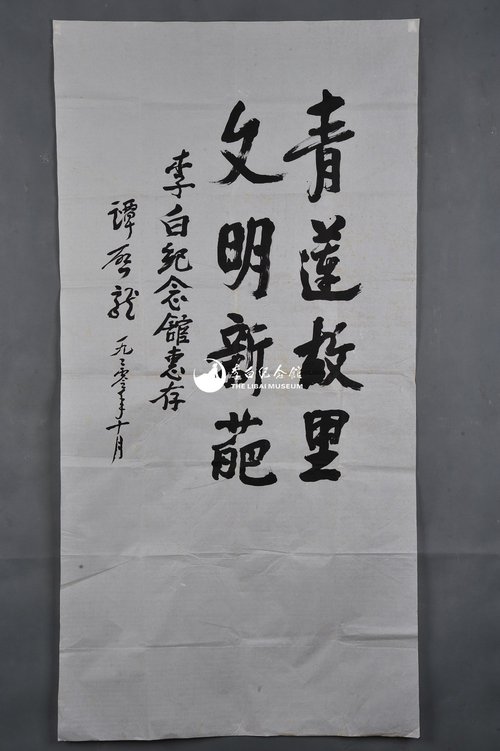 青蓮故里
文明新葩
李白紀念館惠存
譚啓龍 十月
李白纪念馆
THE LIBAI MUSEUM